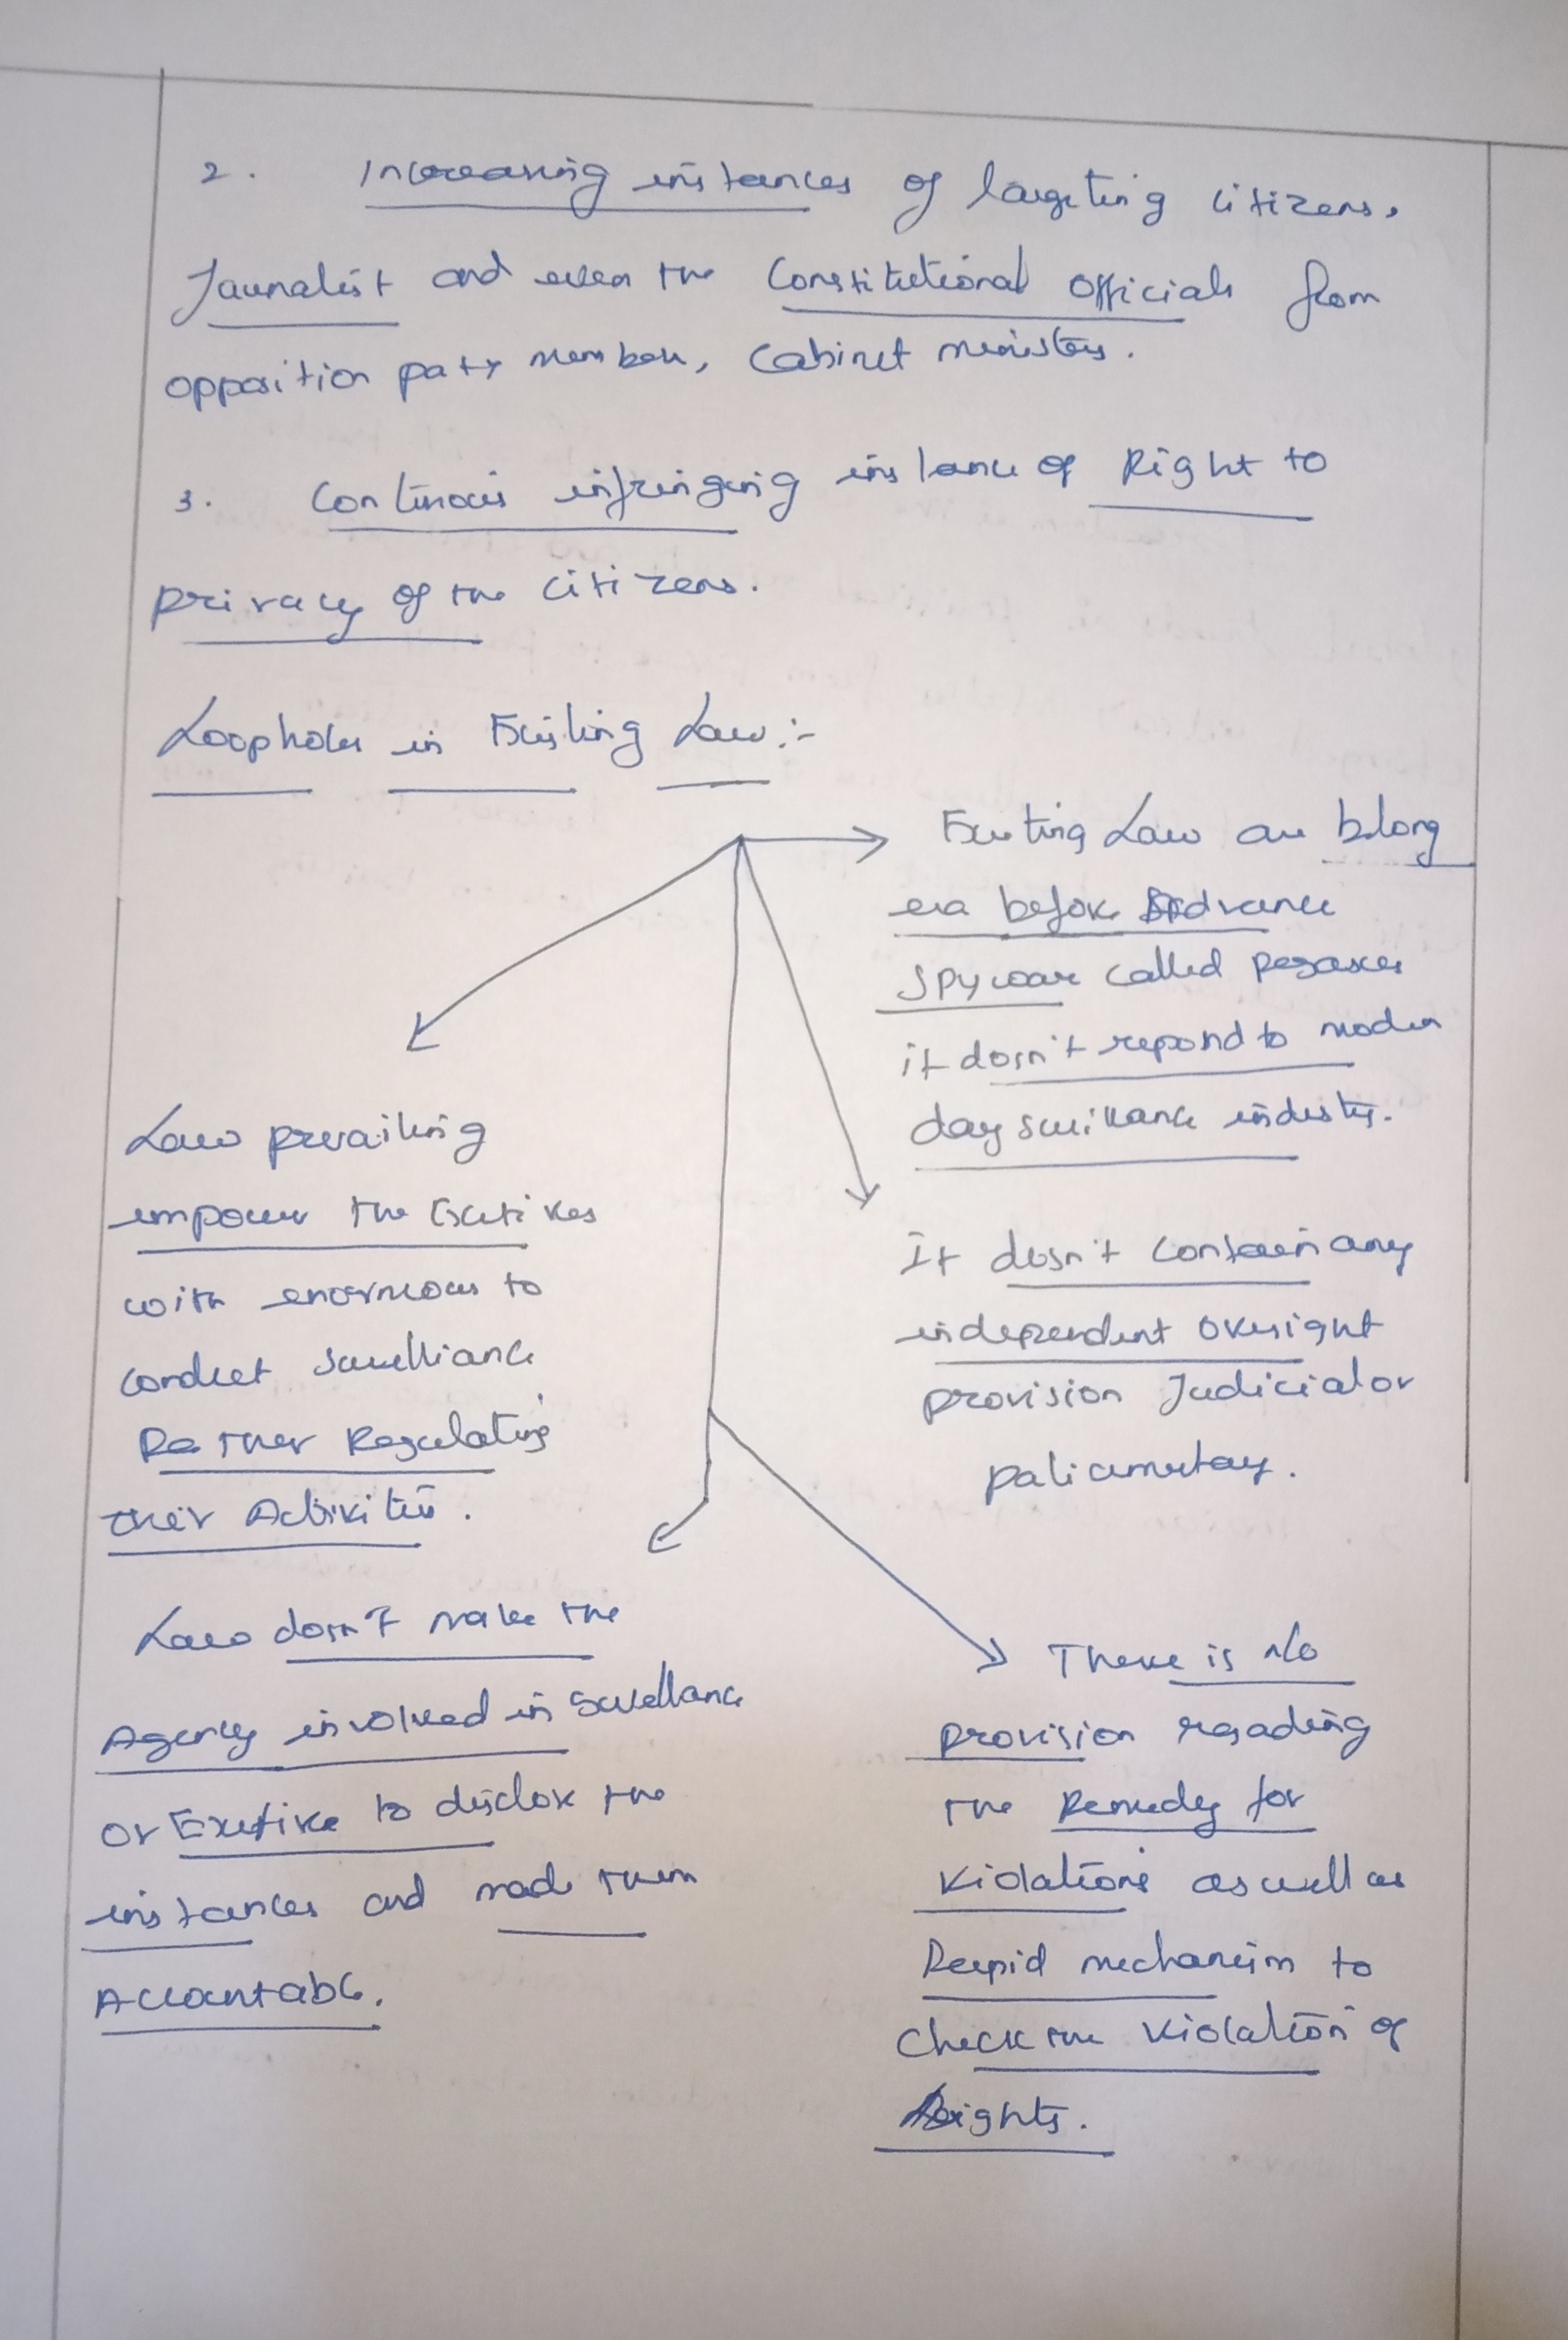 2. Increasing instances of targeting citizens,
Jaunalist and even the Constitutional Officials from
opposition paty member, Cabinet ministers.
3. Continous infringing instance of Right to
privacy of the citizens.
Loopholes in Existing Law :-
Existing Law are belong
era before Advance
Spyware called pegasus
it dosn't repond to modern
day suillance industry.
It dosn't contain any
independent oversight
provision Judicial or
paliamentary.
Law prevailing
empower the Excutives
with enormous to
conduct survelliance
Rather Regulating
their Activities.
Law dosn't make the
Agency involved in Survellance
Or Exutive to disclose the
instances and made them
Accountable.
There is No
provision regading
the Remedy for
Violations as well as
Rapid mechanism to
Check the violation of
Rights.